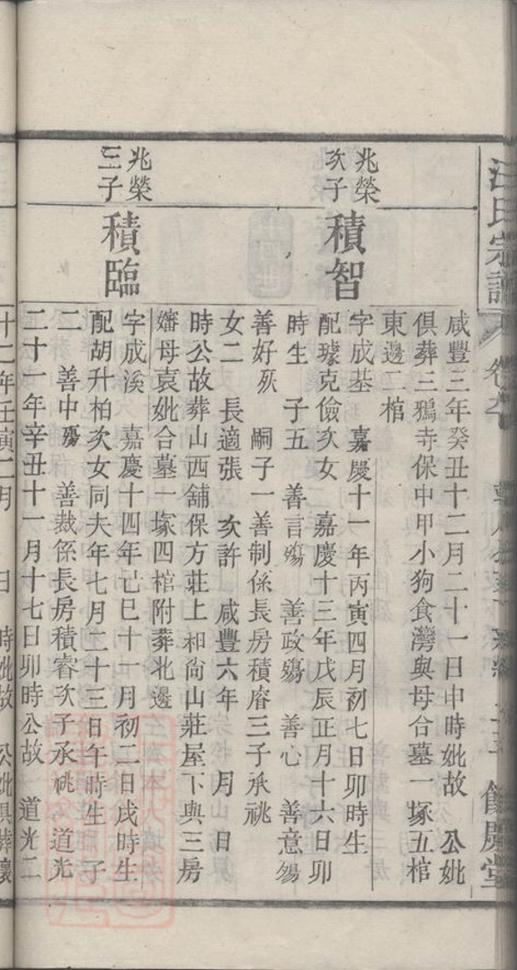 汪氏宗譜
卷
餘慶堂
咸豐三年癸丑十二月二十一日申時妣故 公妣
俱葬三鴉寺保中甲小狗食灣與母合墓一塚五棺
東邊二棺
兆榮
次子
積智
字成基 嘉慶十一年丙寅四月初七日卯時生
配璩克儉次女 嘉慶十三年戊辰正月十六日卯
時生 子五 善言殤 善政殤 善心 善意殤
善好殀 嗣子一善制係長房積睿三子承祧
女二 長適張 次許 咸豐六年 月 日
時公故葬山西舖保方莊上和尙山莊屋下與三房
嬸母袁妣合墓一塚四棺附葬北邊
兆榮
三子
積臨
字成溪 嘉慶十四年己巳十一月初二日戌時生
配胡升柏次女同夫年七月二十三日午時生 子
二 善中殤 善裁係長房積睿次子承祧 道光
二十一年辛丑十一月十七日卯時公故 道光二
十二年壬寅二月 日 時妣故 公妣俱葬